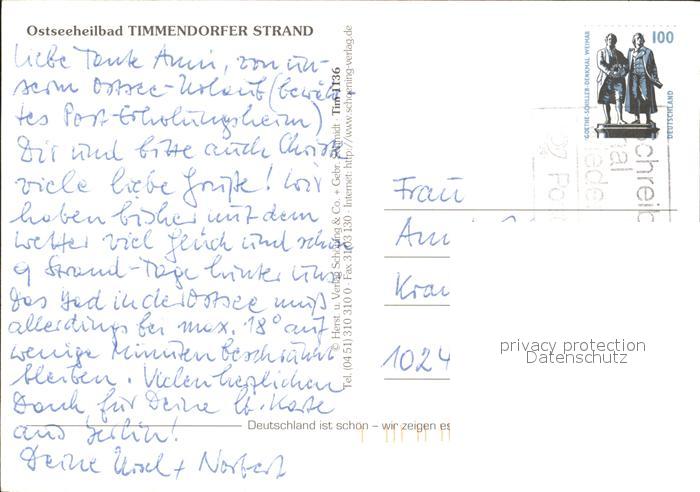 Ostseeheilbad TIMMENDORFER STRAND
Liebe Tante Anni, von un-
serm Ostsee-Urlaub (bewähr-
tes Post-Erholungsheim)
Dir und bitte auch Christa
viele liebe Grüße! Wir
haben bisher mit dem
Wetter viel Glück und schon
9 Strand-Tage hinter uns.
Das Bad in der Ostsee muß
allerdings bei max. 18° auf
wenige Minuten beschränkt
bleiben. Vielen herzlichen
Dank für Deine lb. Karte
aus Berlin!
Deine Ursel + Norbert
© Herst. u. Verlag Schöning & Co. + Gebr. Schmidt · Tim 1136
Tel. (04 51) 310 310 0 · Fax 31 03 130 · Internet: http://www.schoening-verlag.de
Deutschland ist schön – wir zeigen es
GOETHE-SCHILLER-DENKMAL WEIMAR
100
DEUTSCHLAND
Schreib
mal
wieder
Po
Frau
An
Kra
1024
privacy protection
Datenschutz